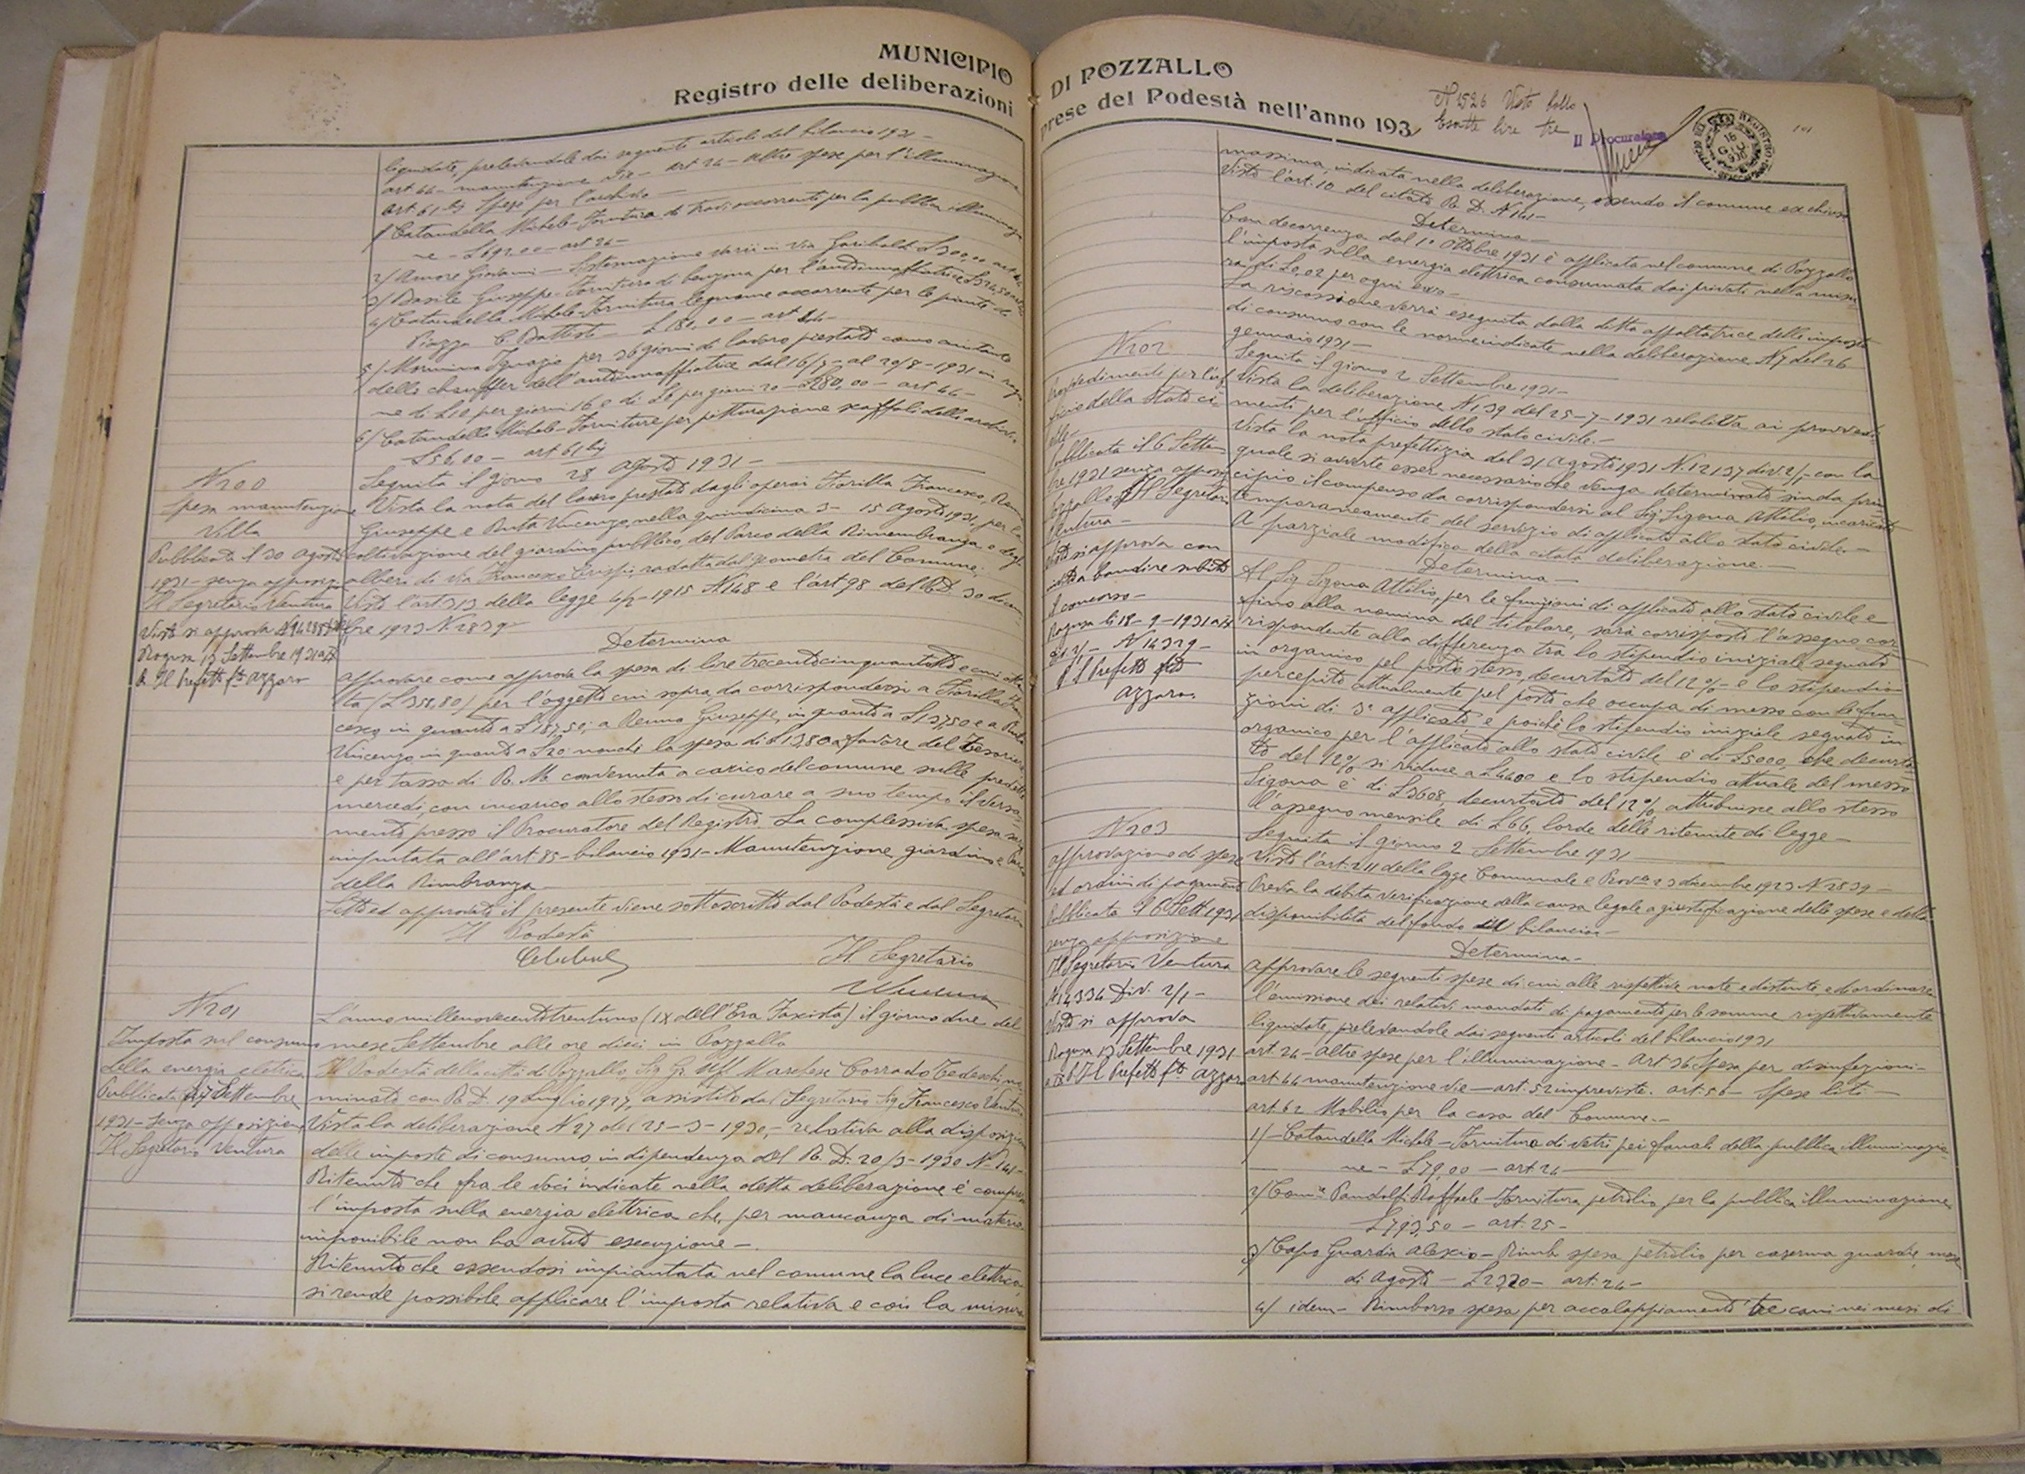 MUNICIPIO
Registro delle deliberazioni
liquidate, prelevandole dai seguenti articoli del bilancio 1931 -
art 44 - manutenzione vie - art 24 - altre spese per l'illuminazione
art. 61 bis Spese per l'archivio
1/ Catandella Michele - Fornitura di occorrenti per la pubblica illuminazio
ne - art 24 -
2/ Amore Giovanni - Sistemazione in Via Garibaldi
3/ Basile Giuseppe - Fornitura di benzina per l'autoinnaffiatrice
4/ Catandella Michele - Fornitura legname occorrente per le piante di
Piazza C. Battisti - £ 180,00 - art 44 -
5/ Ignazio per 36 giorni di lavoro prestato come aiutante
dello chauffer dell'autoinnaffiatrice dal 16/7 - al 20/8 - 1931 in ragio
ne di £ 10 per giorni 16 e di £ 6 per giorni 20 - £ 280,00 - art 44 -
6/ Catandella Michele - Forniture per pitturazione scaffali dello archivio
£ 56,00 - art 61 bis
N 200
Spesa manutenzione
Villa
Pubblicata il 30 Agosto
1931 - senza opposizioni
Il Segretario Ventura
Visto si approva
Ragusa 13 Settembre 1931
Il Prefetto fto Azzaro
Seguita il giorno 28 Agosto 1931 -
Vista la nota del lavoro prestato dagli operai Fiorilla Francesco,
Giuseppe e Ruta Vincenzo, nella quindicina 3 - 15 Agosto 1931, per la
coltivazione del giardino pubblico, del Parco della Rimembranza e degli
alberi di Via Francesco Crispi, redatta dal geometra del Comune;
Visto l'art 313 della legge 4/2 - 1915 N 148 e l'art 98 del R.D. 30 dicem
bre 1923 N. 2839 -
Determina
approvare come approva la spesa di lire trecentocinquantotto e cmi ottan
ta (£ 358,80) per l'oggetto cui sopra da corrispondersi a Fiorilla Fran
cesco in quanto a £ 187,50; a Giuseppe, in quanto a £ 137,50 e a Ruta
Vincenzo in quanto a £ 20 nonchè la spesa di £ 13,80 a favore del Tesoriere
e per tassa di R. M. convenuta a carico del comune sulle predette
mercedi, con incarico allo stesso di curare a suo tempo il versa
mento presso il Procuratore del Registro. La complessiva spesa sarà
imputata all'art. 85 - bilancio 1931 - Manutenzione giardino e Parco
della Rimbranza -
Letto ed approvato il presente viene sottoscritto dal Podestà e dal Segretario
Il Podestà
Il Segretario
N 201
Imposta sul consumo
della energia elettrica
Pubblicata il 7 Settembre
1931 - Senza opposizioni
Il Segretario Ventura
L'anno millenovecentotrentuno (IX dell'Era Fascista) il giorno due del
mese Settembre alle ore dieci in Pozzallo
Il Podestà della città di Pozzallo, Sig. Gr. Uff. Marchese Corrado Tedeschi, no
minato con R. D. 19 Luglio 1927, assistito dal Segretario Sig. Francesco Ventura
Vista la deliberazione N 27 del 25 - 3 - 1930, - relativa alla disposizione
delle imposte di consumo, in dipendenza del R. D. 20/3 - 1930 N 141 -
Ritenuto che fra le voci indicate nella detta deliberazione è compresa
l'imposta sulla energia elettrica che, per mancanza di materia
imponibile non ha avuto esecuzione -
Ritenuto che essendosi impiantata nel comune la luce elettrica
si rende possibile applicare l'imposta relativa e con la misura
DI POZZALLO
prese del Podestà nell'anno 193
N 1526 Visto bollo
Esatte lire tre
Il Procuratore
massima, indicata nella deliberazione, essendo il comune ex chiuso
Visto l'art. 10 del citato R. D. N 141 -
Determina -
Con decorrenza dal 1° Ottobre 1931 è applicata nel comune di Pozzallo
l'imposta sulla energia elettrica consumata dai privati nella misu
ra di £ 0,02 per ogni -
La riscossione verrà eseguita dalla ditta appaltatrice delle imposte
di consumo con le norme indicate nella deliberazione N 7 del 26
gennaio 1931 -
N 202
Provvedimenti per l'uf
ficio dello Stato ci
vile -
Pubblicata il 6 Settem
bre 1931 senza opposi
Il Segretario
Ventura -
Visto si approva con
invito a bandire subito
il concorso -
Ragusa li 18 - 9 - 1931
N 14329 -
Il Prefetto fto
Azzaro.
Seguita il giorno 2 Settembre 1931 -
Vista la deliberazione N 139 del 25 - 7 - 1931 relativa ai provvedi
menti per l'Ufficio dello stato civile. -
Vista la nota prefettizia del 31 Agosto 1931 N. 12137 div. 2/1 con la
quale si avverte esser necessario che venga determinato sin da prin
cipio il compenso da corrispondersi al Sig. Sigona Attilio, incaricato
temporaneamente del servizio di applicato allo stato civile. -
A parziale modifica della citata deliberazione -
Determina -
Al Sig. Sigona Attilio, per le funzioni di applicato allo stato civile e
fino alla nomina del titolare, sarà corrisposto l'assegno cor
rispondente alla differenza tra lo stipendio iniziale segnato
in organico pel posto stesso, decurtato del 12% - e lo stipendio
percepito attualmente pel posto che occupa di messo con le fun
zioni di 3° applicato, e poichè lo stipendio iniziale segnato in
organico per l'applicato allo stato civile è di £ 5000, che decurta
to del 12% si riduce a £ 4400 e lo stipendio attuale del messo
Sigona è di £ 3608, decurtato del 12%, attribuisce allo stesso
l'assegno mensile di £ 66, lorde delle ritenute di legge -
N 203
approvazione di spese
ed ordini di pagamento
Pubblicata il 6 Sett 1931
senza opposizione
Il Segretario Ventura
N 14334 Div. 2/1 -
Visto si approva
Ragusa 13 Settembre 1931
Il Prefetto fto Azzaro
Seguita il giorno 2 Settembre 1931
Visto l'art. 211 della legge Comunale e Prov.le 23 dicembre 1923 N 2839 -
Previa la debita verificazione della causa legale a giustificazione delle spese e della
disponibilità del fondo in bilancio -
Determina -
Approvare le seguenti spese di cui alle rispettive note e distinte ed ordinare
l'emissione dei relativi mandati di pagamento per le somme rispettivamente
liquidate, prelevandole dai seguenti articoli del bilancio 1931
art. 24 - Altre spese per l'illuminazione - Art 36 Spese per disinfezioni -
art 44 manutenzione vie - art. 52 impreviste. art. 56 - Spese liti -
art. 62 Mobilio per la casa del Comune. -
1/ - Catandella Michele - Fornitura di vetri pei fanali della pubblica illuminazio
ne - £ 79,00 - art 24
2/ Pandolfi Raffaele - Fornitura petrolio per la pubblica illuminazione
£ 793,50 - art. 25 -
3/ Capo Guardia Alescio - Rimb. spesa petrolio per caserma guardie, mese
di Agosto - £ 27,20 - art. 24 -
4/ idem - Rimborso spesa per accalappiamento tre cani nei mesi di